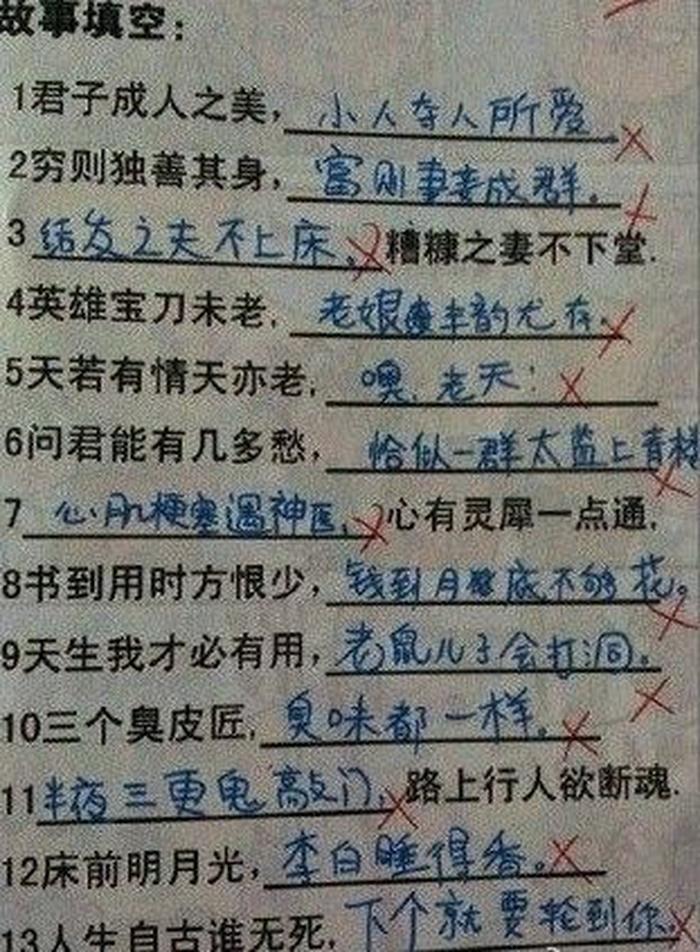 故事填空：
1君子成人之美，小人夺人所爱。
2穷则独善其身，富则妻妾成群。
3结发之夫不上床，糟糠之妻不下堂.
4英雄宝刀未老，老娘风韵尤存.
5天若有情天亦老，噢，老天！
6问君能有几多愁，恰似一群太监上青楼
7心肌梗塞遇神医，心有灵犀一点通，
8书到用时方恨少，钱到月底不够花。
9天生我才必有用，老鼠儿子会打洞。
10三个臭皮匠，臭味都一样。
11半夜三更鬼敲门，路上行人欲断魂.
12床前明月光，李白睡得香。
13人生自古谁无死，下个就要轮到你.